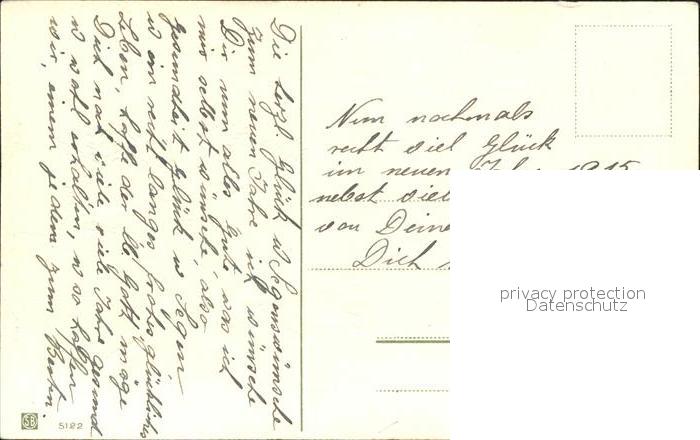 Die herzl. Glück u Segenswünsche
zum neuen Jahre ich wünsche
Dir nun alles Gute was ich
mir selbst wünsche, also
Gesundheit Glück u Segen
u ein recht langes frohes glückliches
Leben, hoffe der lb. Gott möge
Dich noch viele viele Jahre gesund
u wohl erhalten, u so hoffen
wir, einem jedem zum Besten.
Nun nochmals
recht viel Glück
im neuen Jahre 1915
nebst viel
von Deine
Dich
privacy protection
Datenschutz
SB 5122